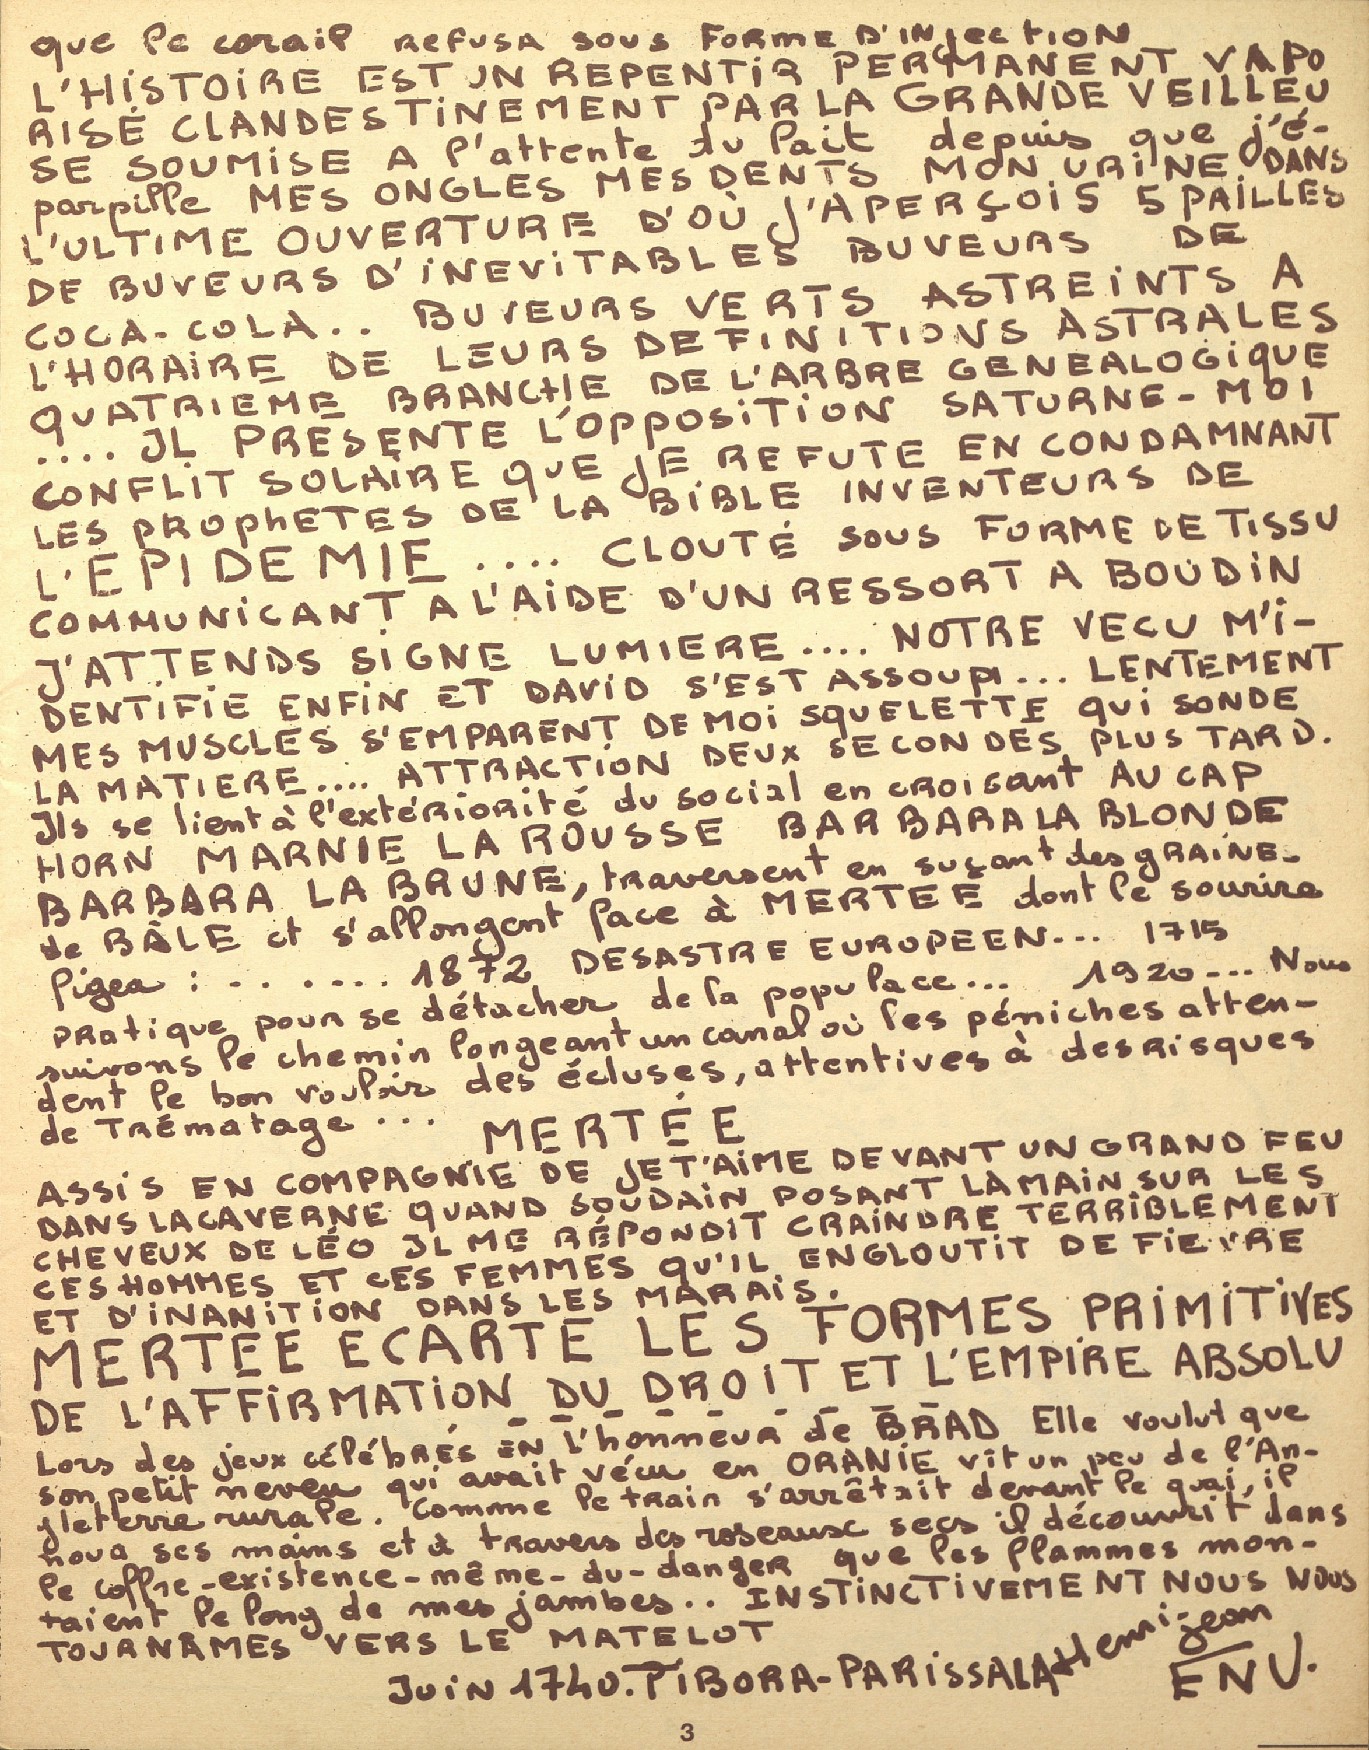 que le corail REFUSA SOUS FORME D'INJECTION
L'HISTOIRE EST UN REPENTIR PERMANENT VAPO
RISÉ CLANDESTINEMENT PAR LA GRANDE VEILLEU
SE SOUMISE A l'attente du lait depuis que j'é-
parpille MES ONGLES MES DENTS MON URINE DANS
L'ULTIME OUVERTURE D'OÙ J'APERÇOIS 5 PAILLES
DE BUVEURS D'INEVITABLES BUVEURS DE
COCA-COLA.. BUVEURS VERTS ASTREINTS A
L'HORAIRE DE LEURS DEFINITIONS ASTRALES
QUATRIEME BRANCHE DE L'ARBRE GENEALOGIQUE
.... IL PRESENTE L'OPPOSITION SATURNE-MOI
CONFLIT SOLAIRE QUE JE REFUTE EN CONDAMNANT
LES PROPHETES DE LA BIBLE INVENTEURS DE
L'EPIDEMIE .... CLOUTÉ SOUS FORME DE TISSU
COMMUNICANT A L'AIDE D'UN RESSORT A BOUDIN
J'ATTENDS SIGNE LUMIERE.... NOTRE VECU M'I-
DENTIFIE ENFIN ET DAVID S'EST ASSOUPI... LENTEMENT
MES MUSCLES S'EMPARENT DE MOI SQUELETTE QUI SONDE
LA MATIERE.... ATTRACTION DEUX SECONDES PLUS TARD.
Ils se lient à l'extériorité du social en croisant AU CAP
HORN MARNIE LA ROUSSE BARBARA LA BLONDE
BARBARA LA BRUNE, traversent en suçant des GRAINE-
de BÂLE et s'allongent face à MERTEE dont le sourire
figea : ....... 1872 DESASTRE EUROPEEN... 1715
pratique pour se détacher de la populace... 1920... Nous
suivons le chemin longeant un canal où les péniches atten-
dent le bon vouloir des écluses, attentives à des risques
de Trématage ...
MERTÉE
ASSIS EN COMPAGNIE DE JE T'AIME DEVANT UN GRAND FEU
DANS LA CAVERNE QUAND SOUDAIN POSANT LA MAIN SUR LES
CHEVEUX DE LÉO IL ME RÉPONDIT CRAINDRE TERRIBLEMENT
CES HOMMES ET CES FEMMES QU'IL ENGLOUTIT DE FIEVRE
ET D'INANITION DANS LES MARAIS.
MERTEE ECARTE LES FORMES PRIMITIVES
DE L'AFFIRMATION DU DROIT ET L'EMPIRE ABSOLU
Lors des jeux célébrés EN l'honneur de BRAD Elle voulut que
son petit neveu qui avait vécu en ORANIE vit un peu de l'An-
gleterre rurale. Comme le train s'arrêtait devant le quai, il
noua ses mains et à travers des roseaux secs il découvrit dans
le coffre-existence-même-du-danger que les flammes mon-
taient le long de mes jambes.. INSTINCTIVEMENT NOUS NOUS
TOURNÂMES VERS LE MATELOT
Juin 1740. PIBORA-PARISSALA Henri-jean
ENU.
3